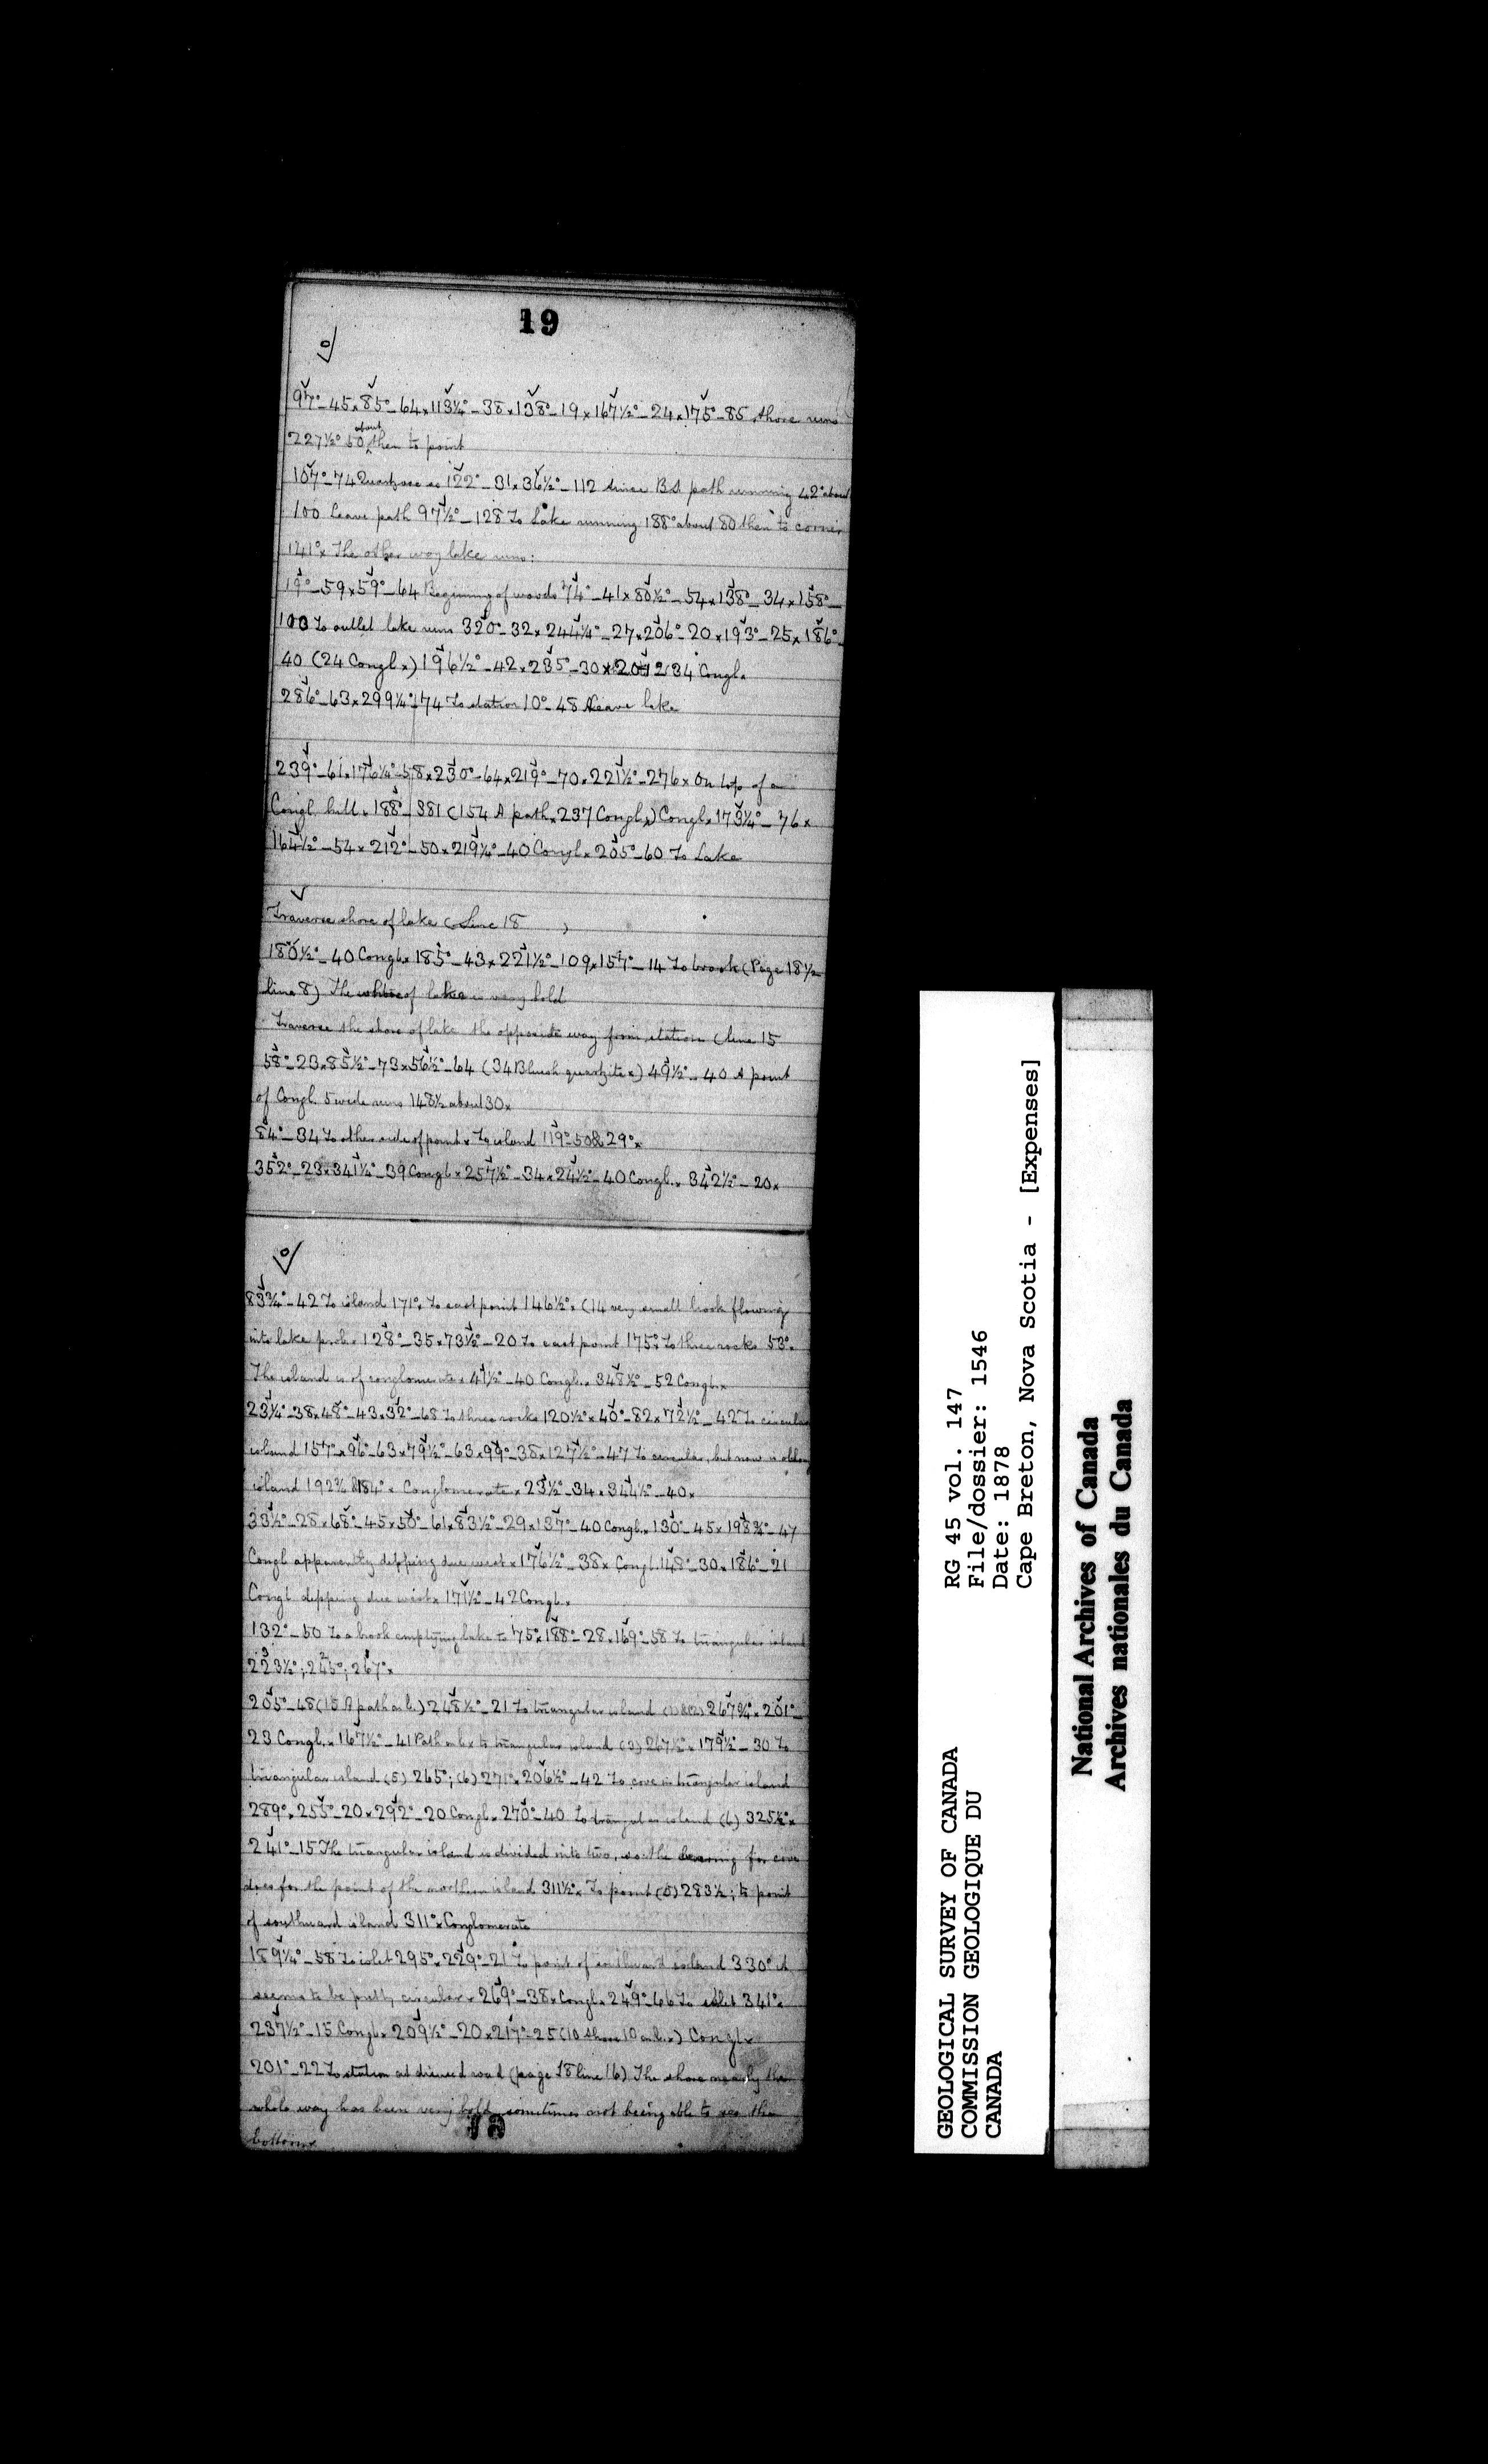 19
97°_45×85°_64×113¼°_38×138°_19×167½°_24×175°_85 shore runs
227½° 50 about then to point
107°_74 122°_31×36½°_112 path running 42° about
100 Leave path 97½°_128 To Lake running 188° about 80 then to corner
141°× The other way lake runs:
19°_59×59°_64 Beginning of woods 74°_41×80½°_54×138°_34×158°_
100 To outlet lake runs 320°_32×244¼°_27×206°_20×193°_25×186°_
40 (24 Congl.×) 196½°_42×235°_30× 234 Congl.×
286°_63×299¼°_174 To station 10°_48 Leave lake
239°_61×176¼°_58×230°_64×219°_70×221½°_276× On top of a
Congl. hill× 188°_381 (154 A path× 237 Congl.×) Congl.× 173¼°_76×
164½°_54×212°_50×219¼°_40 Congl.× 205°_60 To Lake
Traverse shore of lake (Line 18 )
180½°_40 Congl.× 185°_43×221½°_109×157°_14 To brook (Page 18½
line 8) The of lake is very bold
Traverse the shore of lake the opposite way from station (line 15
58°_23×85½°_73×56½°_64 (34 Bluish quartzite×) 49½°_40 A point
of Congl. 5 wide runs 148½ about 30×
84°_34 To other side of point× To island 119°_50& 29°×
352°_23×341¼°_39 Congl.× 257½°_34×24½°_40 Congl.× 342½°_20×
83¾°_42 To island 171°× To east point 146½°× (14 very small brook flowing
into lake prob.× 128°_35×73½°_20 To east point 175°× To three rocks 53°×
The island is of conglomerate× 41½°_40 Congl.× 348½°_52 Congl.×
23¼°_38×48°_43×32°_68 To three rocks 120½°×40°_82×72½°_42 To circular
island 157°×96°_63×79½°_63×99°_38×127½°_47 To circular, but now is oblong
island 192¾ & 184°× Conglomerate× 23½°_34×344½°_40×
33½°_28×68°_45×50°_61×83½°_29×137°_40 Congl.× 130°_45×198¾°_47
Congl. apparently dipping due west× 176½°_38× Congl. 148°_30×186°_21
Congl. dipping due west× 171½°_42 Congl.×
132°_50 To a brook emptying lake to 75°×188°_28×169°_58 To triangular island
223½°; 245°; 267°×
205°_48 (15 A path on l.) 248½°_21 To triangular island (1)&(2) 267¾°× 201°_
23 Congl.× 167½°_41 Path on l.× to triangular island (3) 267½°× 179½°_30 To
triangular island (5) 265°; (6) 271°× 206½°_42 To cove in triangular island
289°× 255°_20×292°_20 Congl.× 270°_40 To triangular island (6) 325½°×
241°_15 The triangular island is divided into two, so the bearing for cove
does for the point of the northern island 311½°× To point (5) 283½; to point
of southward island 311°× Conglomerate
189¼°_58 To islet 295°× 229°_21 To point of southward island 330° it
seems to be pretty circular× 269°_38× Congl.× 249°_66 To islet 341°×
237½°_15 Congl.× 209½°_20×217°_25 (10 shore 10 on l.×) Congl.×
201°_22 To station at disused road (page 18 line 16) The shore nearly the
whole way has been very bold sometimes not being able to see the
bottom×
GEOLOGICAL SURVEY OF CANADA
COMMISSION GEOLOGIQUE DU
CANADA
RG 45 vol. 147
File/dossier: 1546
Date: 1878
Cape Breton, Nova Scotia - [Expenses]
National Archives of Canada
Archives nationales du Canada